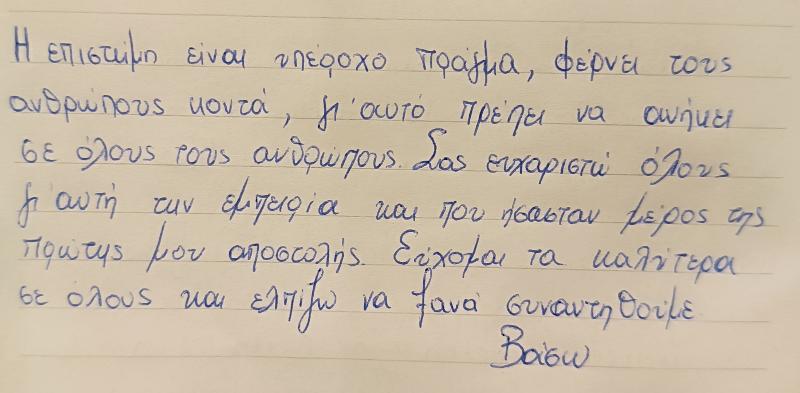 Η επιστήμη είναι υπέροχο πράγμα, φέρνει τους
ανθρώπους κοντά, γι'αυτό πρέπει να ανήκει
σε όλους τους ανθρώπους. Σας ευχαριστώ όλους
γι'αυτή την εμπειρία και που ήσασταν μέρος της
πρώτης μου αποστολής. Εύχομαι τα καλύτερα
σε όλους και ελπίζω να ξανά συναντηθούμε
Βάσω